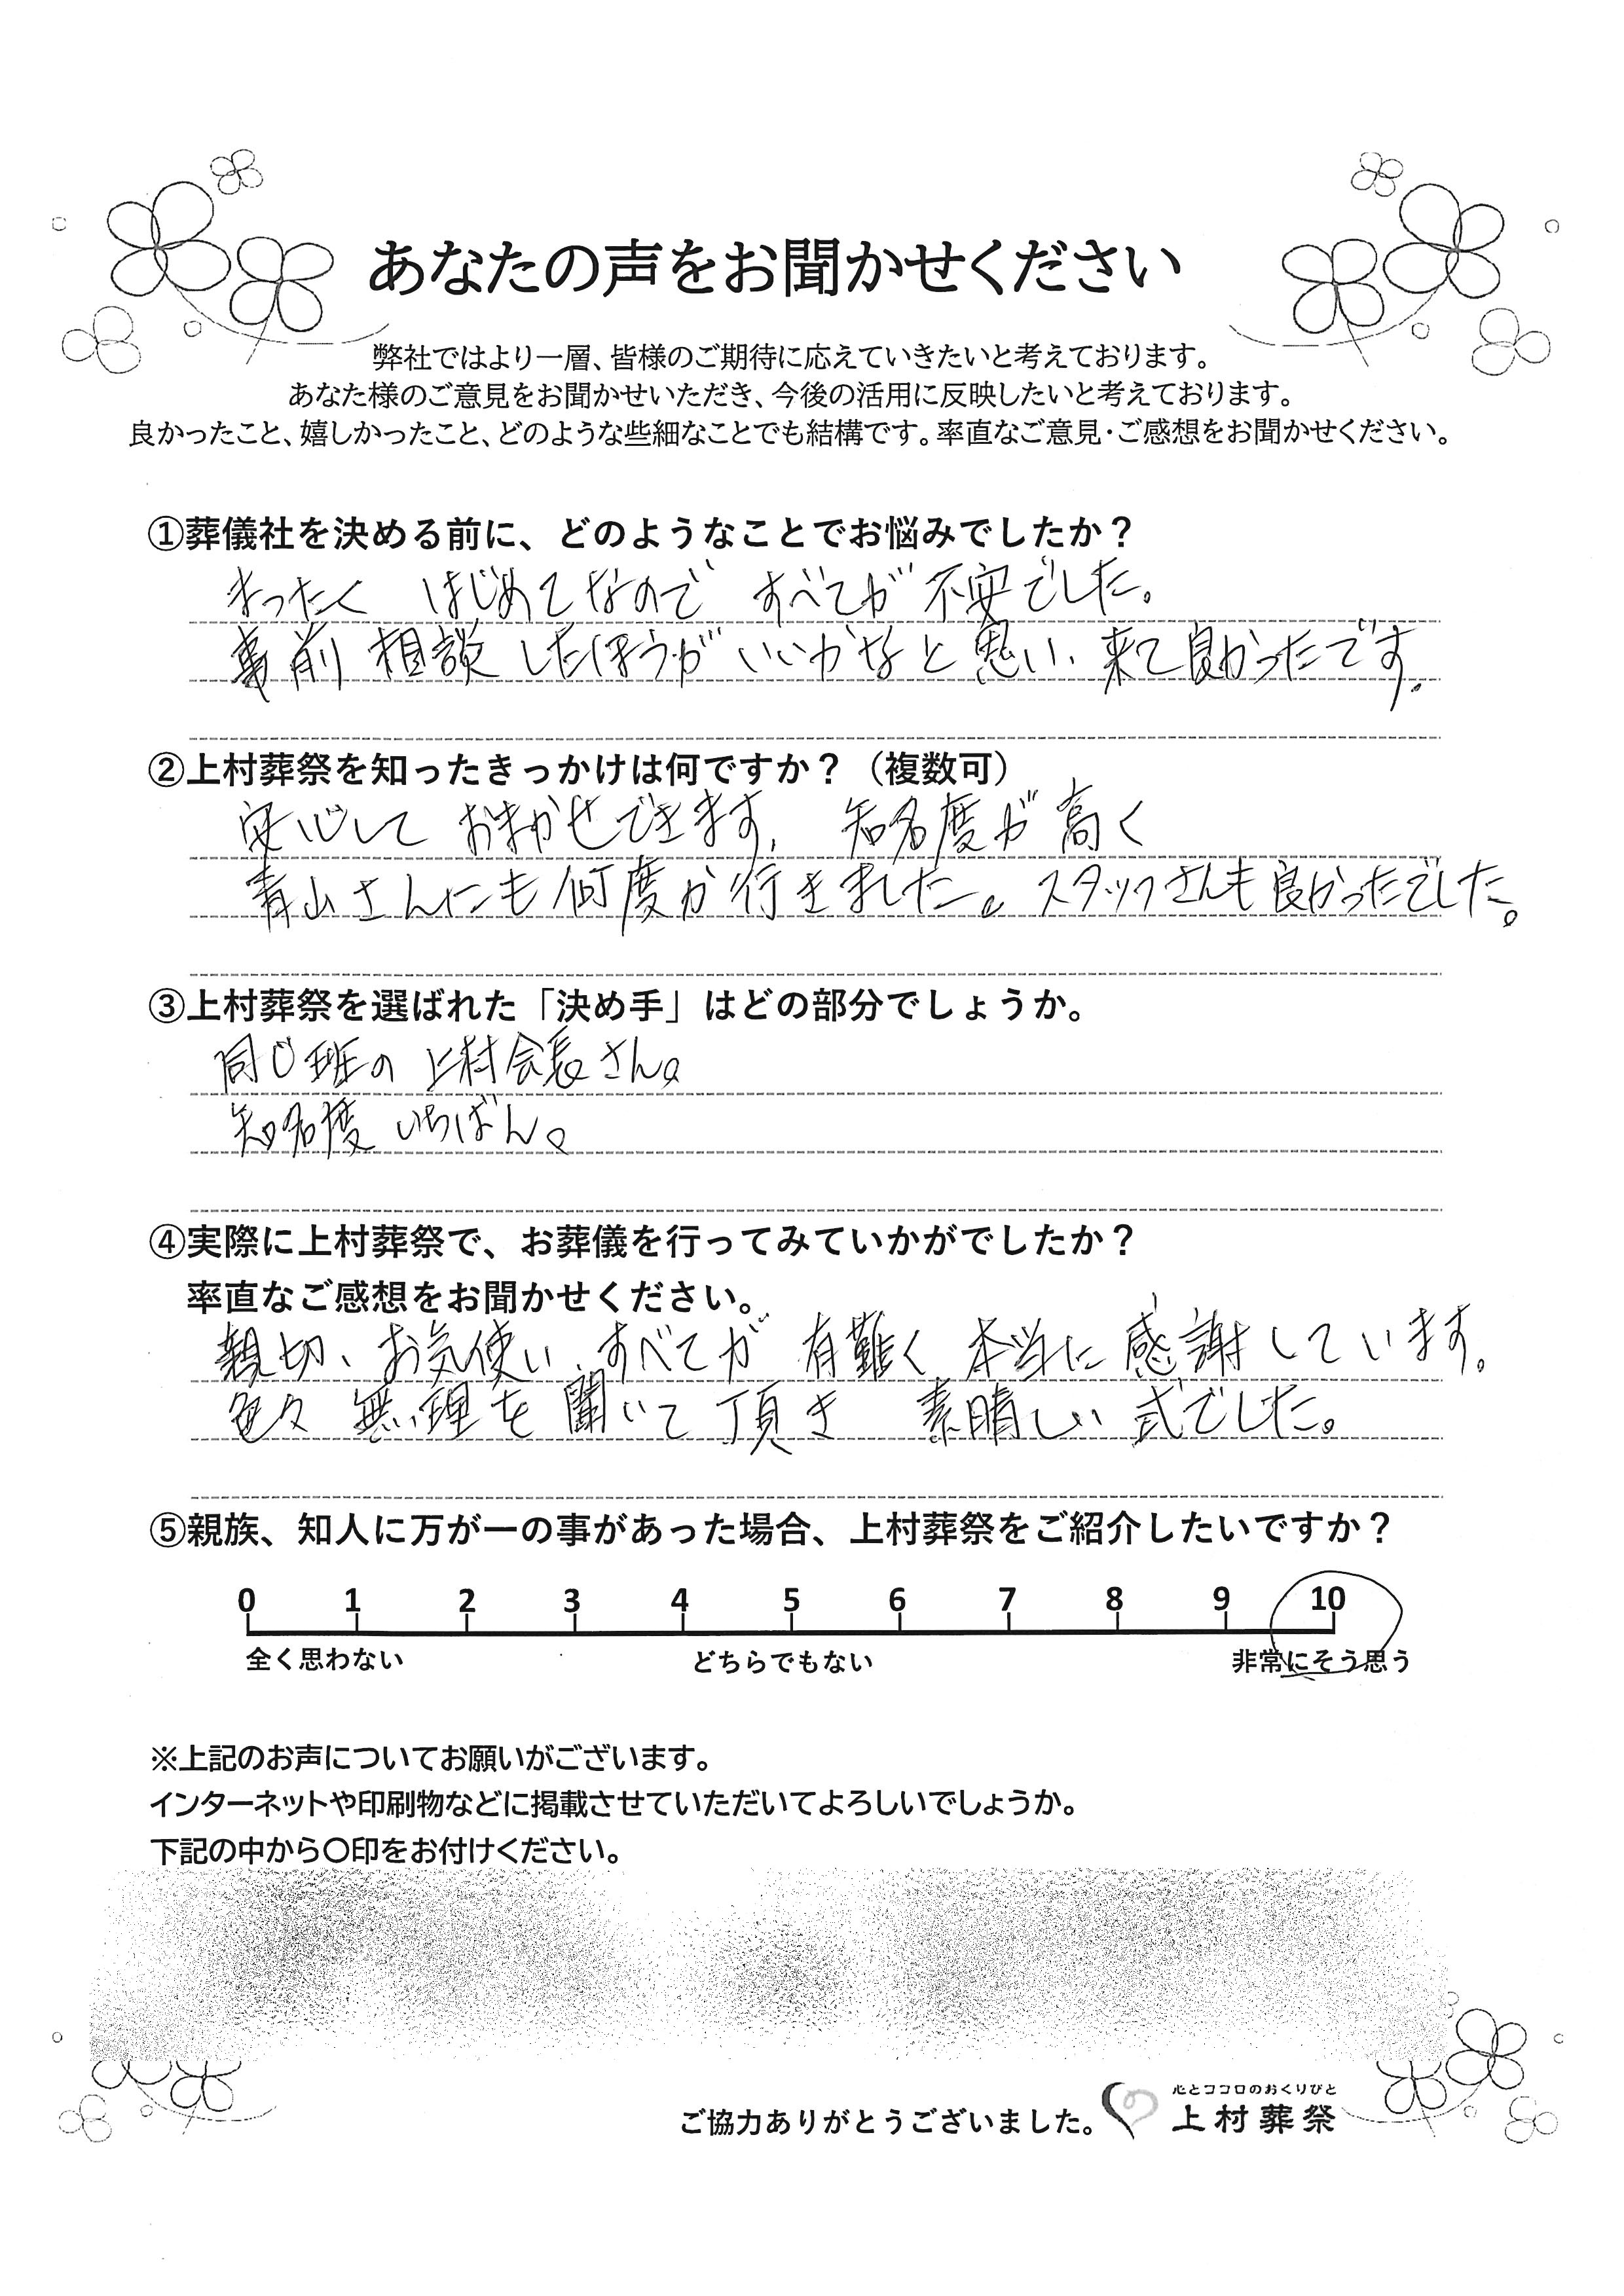 あなたの声をお聞かせください
弊社ではより一層、皆様のご期待に応えていきたいと考えております。
あなた様のご意見をお聞かせいただき、今後の活用に反映したいと考えております。
良かったこと、嬉しかったこと、どのような些細なことでも結構です。率直なご意見・ご感想をお聞かせください。
①葬儀社を決める前に、どのようなことでお悩みでしたか？
まったく はじめてなので すべてが 不安でした。
事前 相談 したほうが いいかなと 思い、来て良かったです。
②上村葬祭を知ったきっかけは何ですか？（複数可）
安心して おまかせできます。 知名度が 高く
青山さんにも何度か行きました。スタッフさんも良かったでした。
③上村葬祭を選ばれた「決め手」はどの部分でしょうか。
同じ班の 上村会長さん。
知名度 いちばん。
④実際に上村葬祭で、お葬儀を行ってみていかがでしたか？
率直なご感想をお聞かせください。
親切、お気使い、すべてが 有難く 本当に 感謝しています。
色々 無理を 聞いて 頂き 素晴しい 式でした。
⑤親族、知人に万が一の事があった場合、上村葬祭をご紹介したいですか？
0 1 2 3 4 5 6 7 8 9 10
全く思わない どちらでもない 非常にそう思う
※上記のお声についてお願いがございます。
インターネットや印刷物などに掲載させていただいてよろしいでしょうか。
下記の中から〇印をお付けください。
心とココロのおくりびと
ご協力ありがとうございました。 上村葬祭